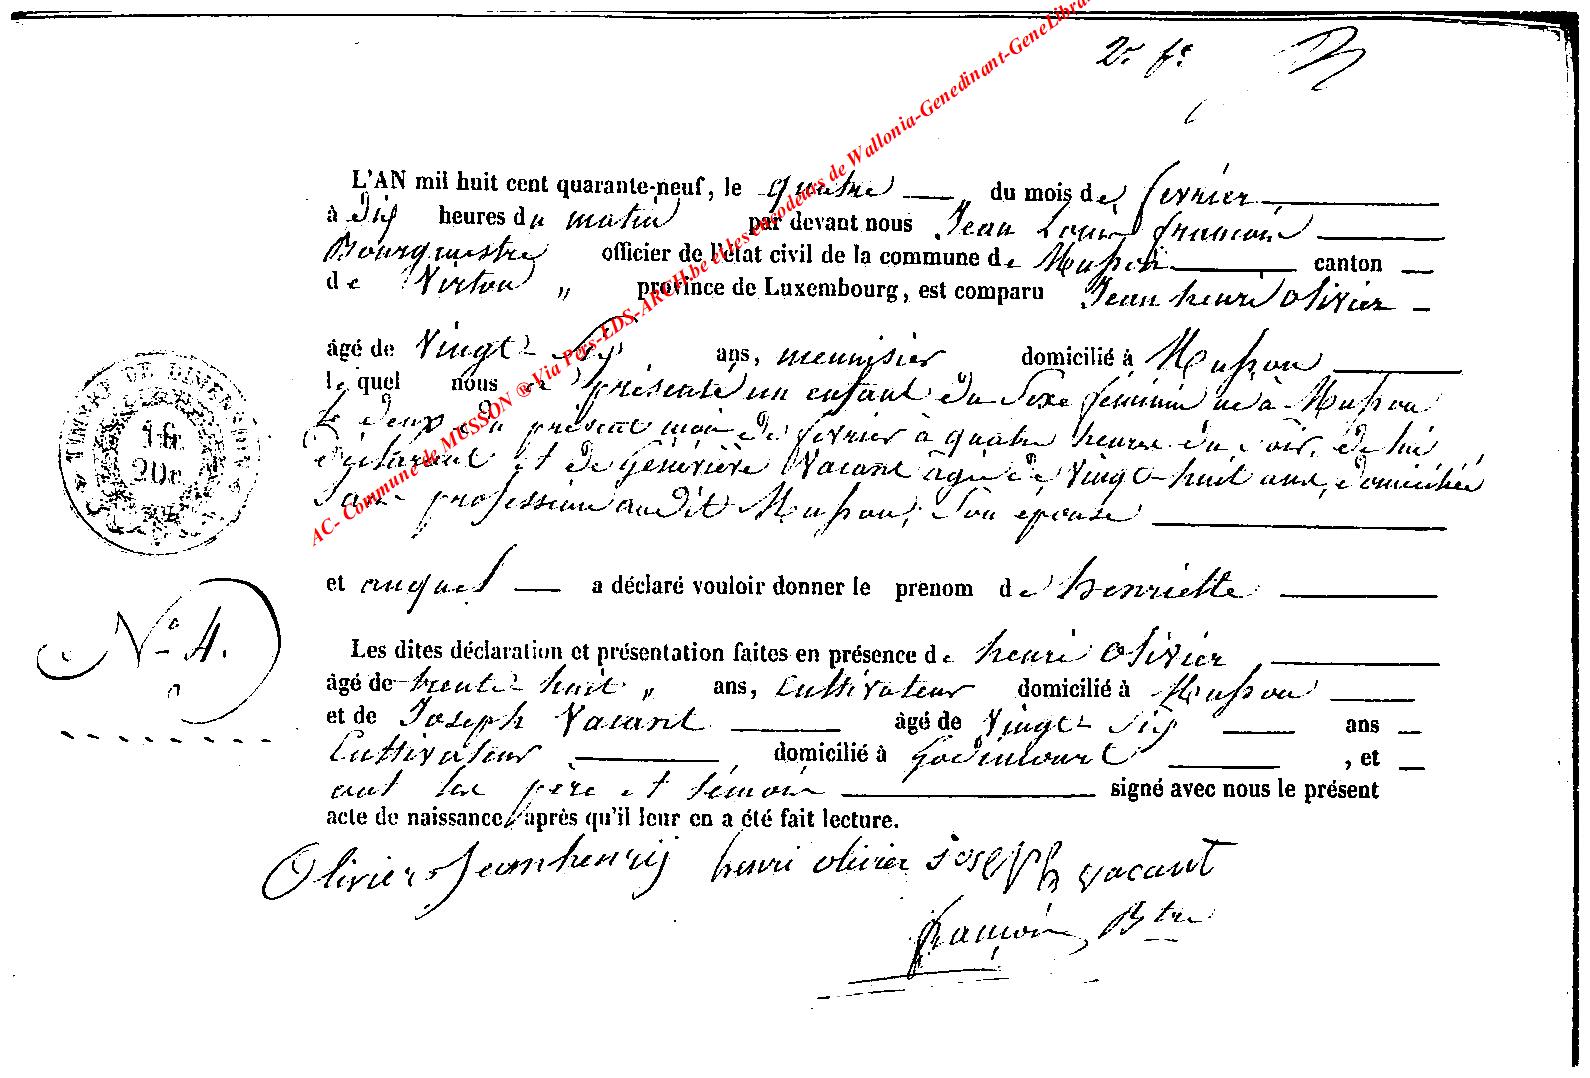 2e fe
L'AN mil huit cent quarante-neuf, le quatre du mois de février
à dix heures du matin par devant nous Jean Louis françois
Bourgmestre officier de l'état civil de la commune de Musson canton
de Virton " province de Luxembourg, est comparu Jean henri Olivier
âgé de Vingt six ans, menuisier domicilié à Musson
le quel nous a présenté un enfant du Sexe féminin né à Musson
le deux du présent mois de février à quatre heures du soir, de lui
déclarant et de Geneviève Vacant agée de Vingt-huit ans, domiciliée
Sans profession audit Musson, Son épouse
et auquel a déclaré vouloir donner le prenom de henriette
Les dites déclaration et présentation faites en présence de henri Olivier
âgé de trente huit " ans, Cultivateur domicilié à Musson
et de Joseph Vacant âgé de Vingt six ans
Cultivateur domicilié à Godincourt, et
ont les père et témoins signé avec nous le présent
acte de naissance, après qu'il leur en a été fait lecture.
Olivier Jeanhenrij henri olivier joseph vacant
françois Btre
TIMBRE DE DIMENSION
1 fr.
20c
No 4.
AC- Commune de MUSSON ® Via Pers-EDS-ARCH.be et les encodeurs de Wallonia-Genedinant-GeneLibra